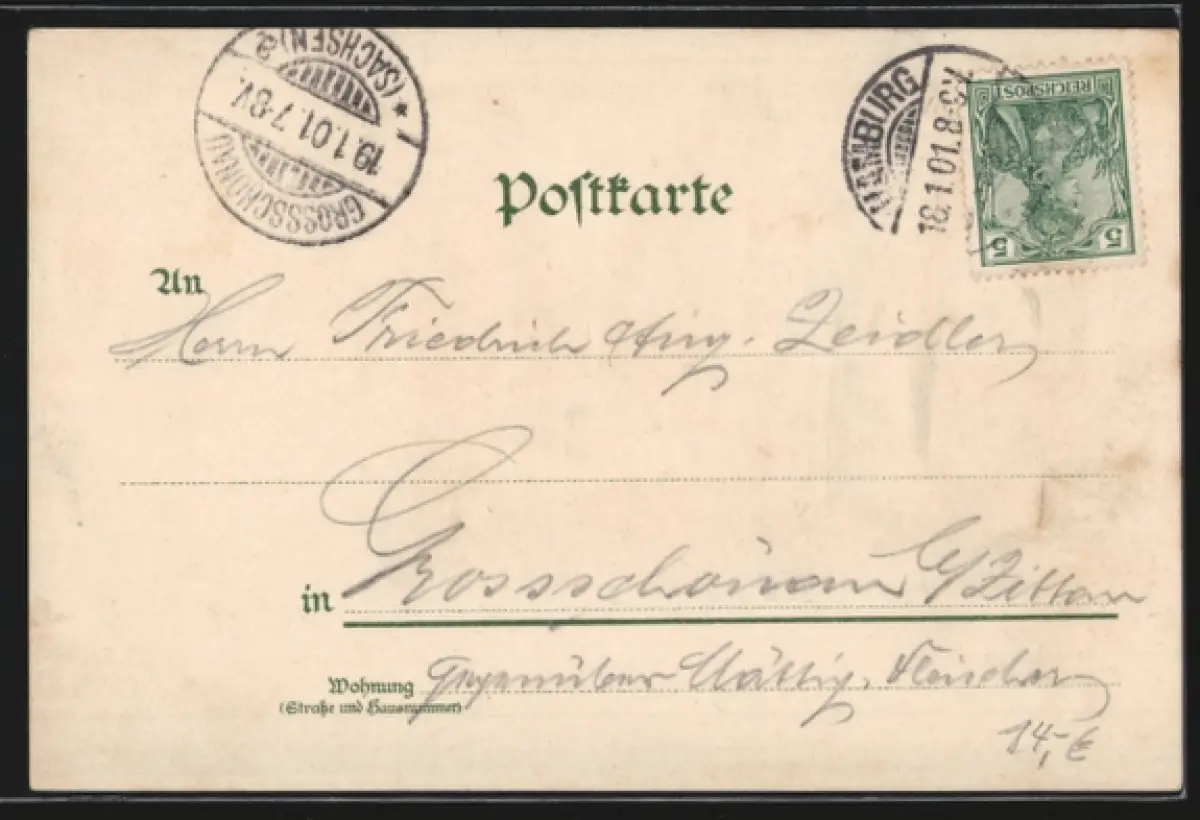 GROSSSCHÖNAU
19.1.01.7-8V.
* (SACHSEN) a
HAMBURG
18.1.01.8-9V.
REICHSPOST
5 5
Postkarte
An
Herrn Friedrich Aug. Zeidler
in Grossschönau b/Zittau
Wohnung gegenüber Mättig, Fleischer
(Straße und Hausnummer)
14,- €